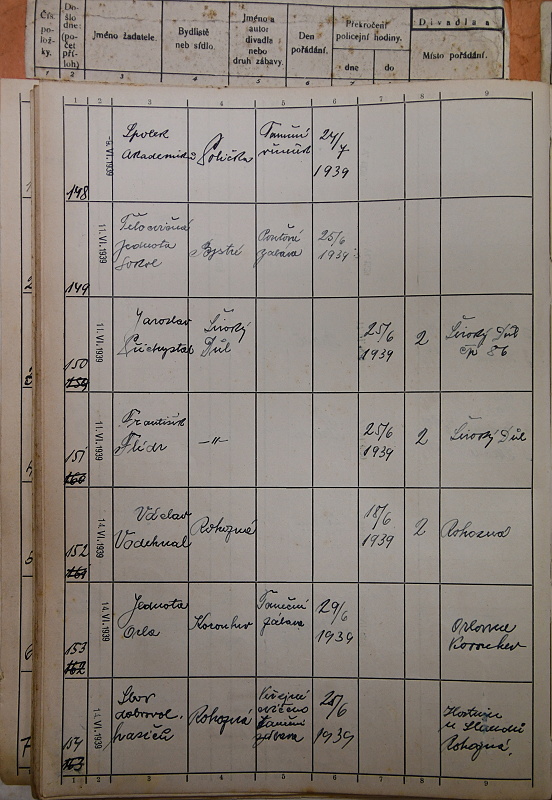 Čís. po- ložky.
Do- šlo dne: (po- čet pří- loh)
Jméno žadatele.
Bydliště neb sídlo.
Jméno a autor divadla nebo druh zábavy.
Den pořádání.
Překročení policejní hodiny.
dne
do
Divadla a
Místo pořádání.
1 2 3 4 5 6 7
1 2 3 4 5 6 7 8 9
148
VI. 1939
Spolek
Akademiků
Polička
Taneční
24/7
1939
149
11. VI. 1939
Tělocvičná
Jednota
Sokol
Bystré
zábava
25/6
1939
150
11. VI. 1939
Jaroslav
Široký
Důl
25/6
1939
2
Široký Důl
čp 86
151
11. VI. 1939
František
Flídr
-"-
25/6
1939
2
Široký Důl
152
14. VI. 1939
Václav
Vodehnal
Rohozná
18/6
1939
2
Rohozná
153
14. VI. 1939
Jednota
Orla
Korouhev
Taneční
zábava
29/6
1939
Orlovna
Korouhev
154
14. VI. 1939
Sbor
dobrovol.
hasičů
Rohozná
Veřejné
cvičení
taneční
zábava
1939
Hostinec
u
Rohozná.
1 2 3 4 5 6 7 8 9